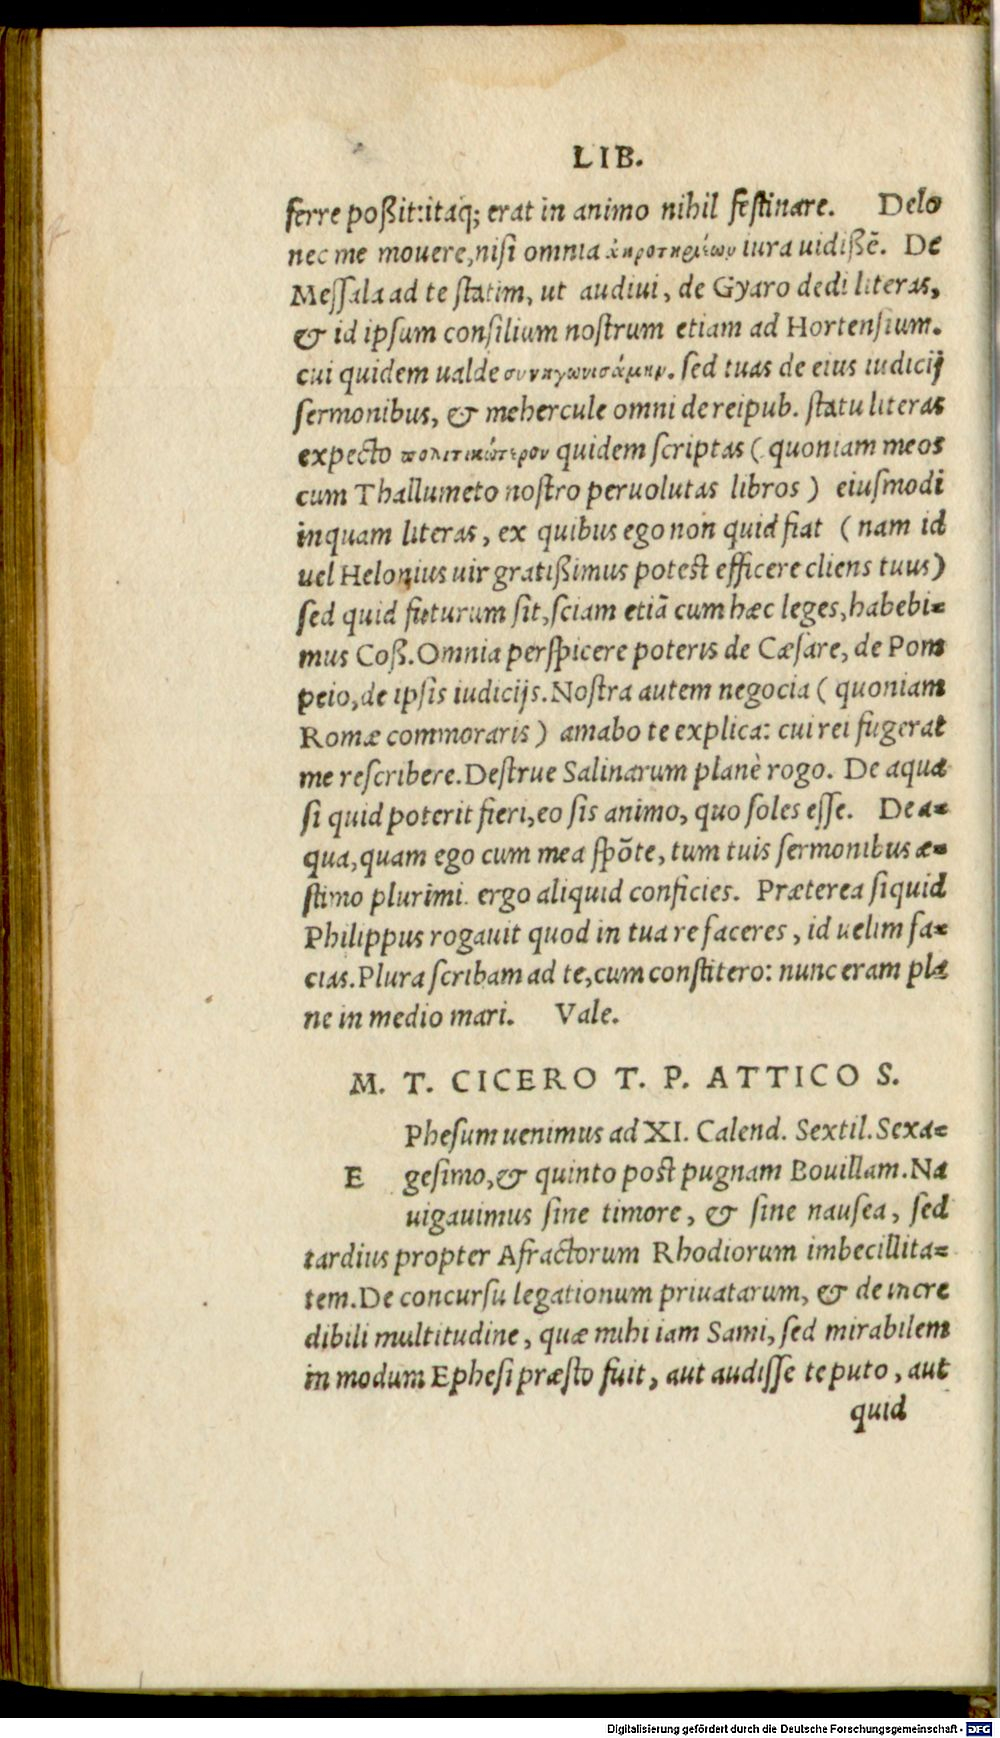 LIB.
ferre poßit:itaq; erat in animo nihil festinare. Delo
nec me mouere,nisi omnia ἀκροτηρίων iura uidißē. De
Messala ad te statim, ut audiui, de Gyaro dedi literas,
& id ipsum consilium nostrum etiam ad Hortensium.
cui quidem ualde συνηγωνισάμην. sed tuas de eius iudicij
sermonibus, & mehercule omni de reipub. statu literas
expecto πολιτικώτερον quidem scriptas ( quoniam meos
cum Thallumeto nostro peruolutas libros ) eiusmodi
inquam literas, ex quibus ego non quid fiat ( nam id
uel Helonius uir gratißimus potest efficere cliens tuus)
sed quid futurum sit,sciam etiā cum hæc leges,habebi=
mus Coß.Omnia perspicere poteris de Cæsare, de Pom
peio,de ipsis iudicijs.Nostra autem negocia ( quoniam
Romæ commoraris ) amabo te explica: cui rei fugerat
me rescribere.Destrue Salinarum planè rogo. De aqua
si quid poterit fieri,eo sis animo, quo soles esse. De a=
qua,quam ego cum mea spōte, tum tuis sermonibus æ=
stimo plurimi. ergo aliquid conficies. Præterea siquid
Philippus rogauit quod in tua re faceres, id uelim fa=
cias.Plura scribam ad te,cum constitero: nunc eram pla
ne in medio mari. Vale.
M. T. CICERO T. P. ATTICO S.
Phesum uenimus ad XI. Calend. Sextil.Sexa=
E gesimo,& quinto post pugnam Bouillam.Na
uigauimus sine timore, & sine nausea, sed
tardius propter Afractorum Rhodiorum imbecillita=
tem.De concursu legationum priuatarum, & de incre
dibili multitudine, quæ mihi iam Sami, sed mirabilem
in modum Ephesi præsto fuit, aut audisse te puto, aut
quid
Digitalisierung gefördert durch die Deutsche Forschungsgemeinschaft - DFG